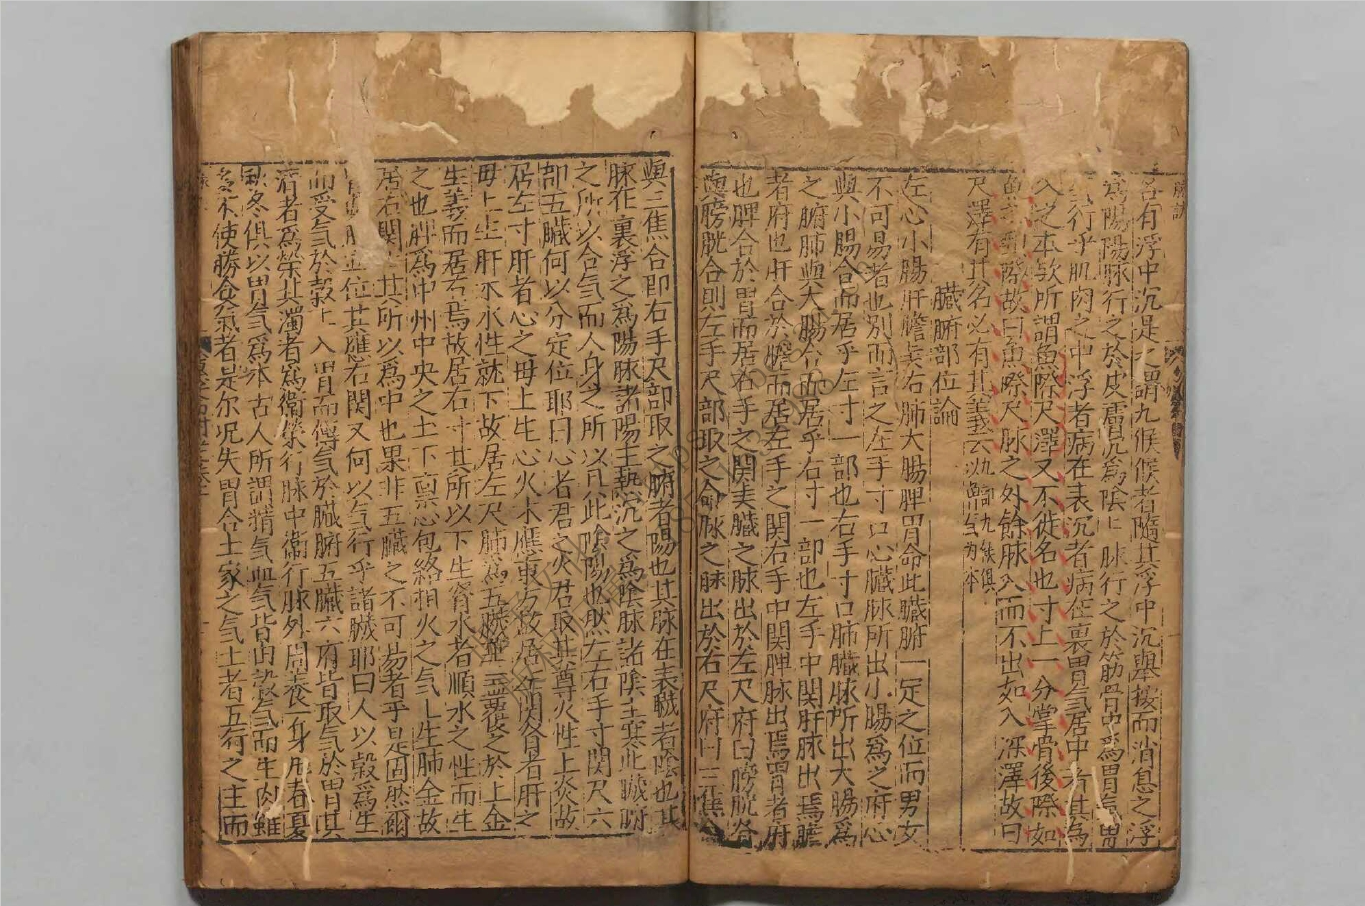 各有浮中沉是之謂九候候者隨其浮中沉舉按而消息之浮
爲陽陽脉行之於皮膚沉爲陰陰脉行之於筋骨中爲胃氣胃
氣行乎肌肉之中浮者病在表沉者病在裏胃氣居中
入之本歟所謂魚際尺澤又不徒名也寸上一分掌骨後際如
魚際故曰魚際尺脉之外餘脉入而不出如入深澤故曰
尺澤有其名必有其義云
臟腑部位論
左心小腸肝膽腎右肺大腸脾胃命此臟腑一定之位而男女
不可易者也別而言之左手寸口心臟脉所出小腸爲之府心
與小腸合而居乎左寸一部也右手寸口肺臟脉所出大腸爲
之腑肺與大腸合而居乎右寸一部也左手中関肝脉出焉膽
者府也肝合於膽而居左手之関右手中関脾脉出焉胃者府
也脾合於胃而居右手之関
與膀胱合則左手尺部取之命脉之脉出於右尺府曰三焦
與三焦合即右手尺部取之腑者陽也其脉在表臟者陰也其
脉在裏浮之爲陽脉諸陽主熱沉之爲陰脉諸陰主寒此臟腑
之所以合氣而人身之所以具此陰陽也然左右手寸関尺六
部五臟何以分定位耶曰心者君之火君取其尊火性上炎故
居左寸肝者心之母上生心火木應東方故居左関腎者肝之
母上生肝木水性就下故居左尺肺爲五臟華盖覆之於上金
生義而居右焉故居右寸其所以下生腎水者順水之性而生
之也脾爲中州中央之土下禀心包絡相火之气上生肺金故
居右関其所以爲中也果非五臟之不可易者乎是固然爾
位其應右関又何以气行乎諸臟耶曰人以穀爲生
而受气於穀上入胃而傳气於臟腑五臟六府皆取气於胃其
清者爲榮其濁者爲衛榮行脉中衛行脉外周養一身用春夏
秋冬俱以胃气爲本古人所謂精气血气皆由穀气而生肉雖
多不使勝食氣者是尔况失胃合土家之气土者五行之主而